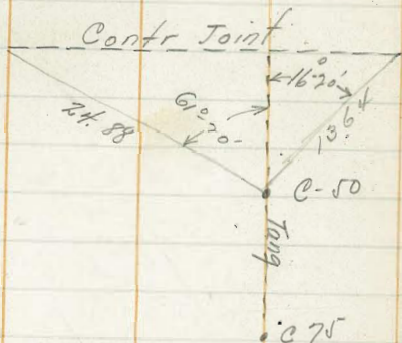 Contr Joint
16°-20'
61°-20-
24.88
13.64
C-50
Tang
C 75